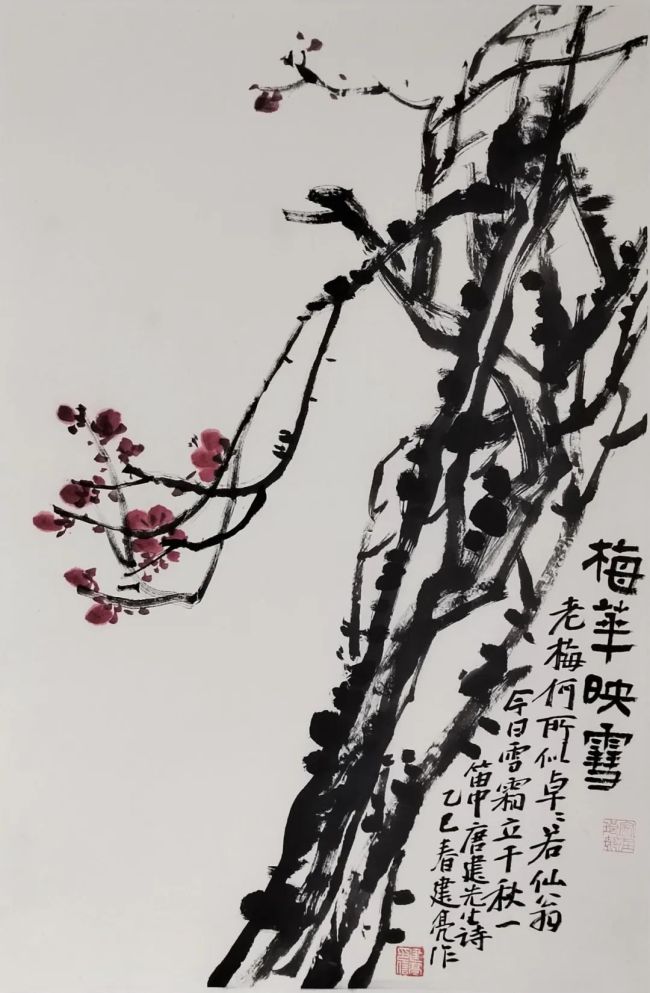 梅華映雪
老梅何所似卓〻若仙翁
今日雪霜立千秋一
笛中唐建先生詩
乙巳春建亮作